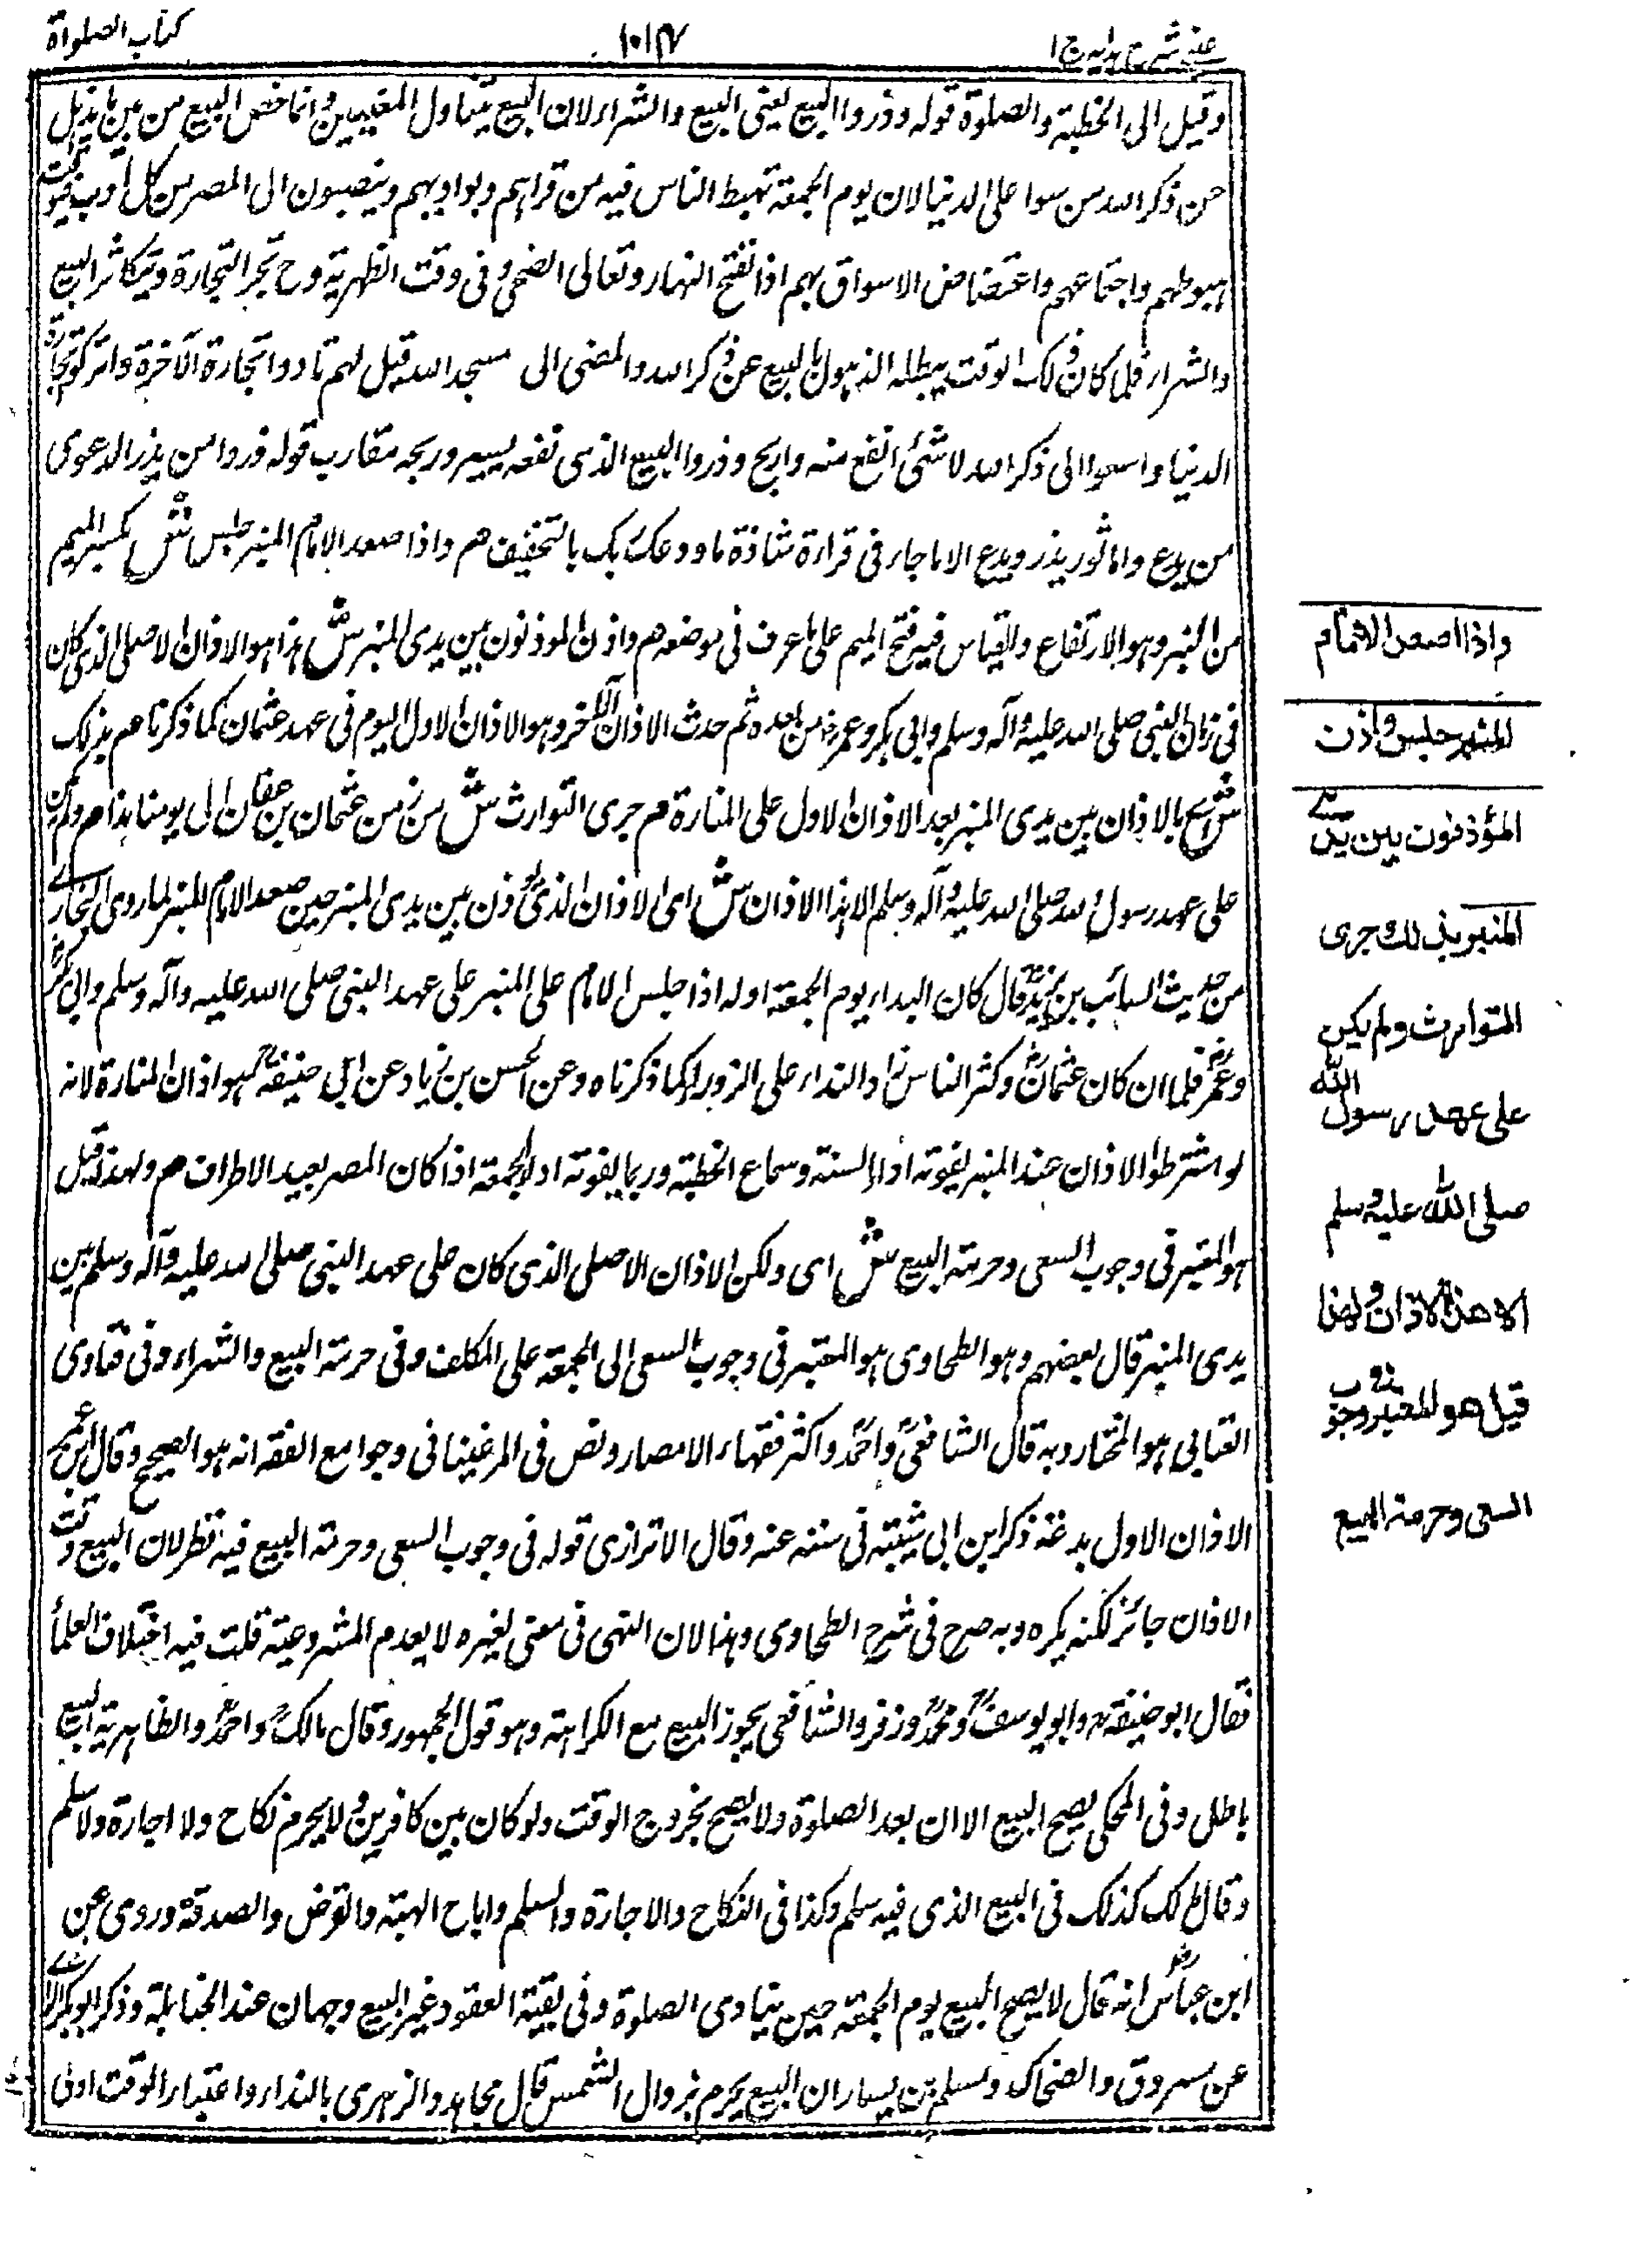 عينى شرح هدايه ج ١
١٠١٤
كتاب الصلواة
وقيل الى الخطبة والصلوة قوله وذروا البيع يعنى البيع والشراء لان البيع يتناول المعنيين وانما خص البيع من بين ما يذهل
عن ذكر الله من سوا على الدنيا لان يوم الجمعة تهبط الناس فيه من قراهم وبواديهم وينصبون الى المصر من كل اوب فيوقت
هبوطهم واجتماعهم واغتصاص الاسواق بهم اذا انفتح النهار وتعالى الضحى وفى وقت الظهرية وح تجر التجارة ويتكاثر البيع
والشراء فلما كان ذلك الوقت يبطله الذهول بالبيع عن ذكر الله والمضى الى مسجد الله قيل لهم بادروا تجارة الآخرة واتركوا تجارة
الدنيا واسعوا الى ذكر الله لا شئ انفع منه واربح وذروا البيع الذى نفعه يسير وربحه مقارب قوله ذروا من يذر الدعوى
من يدع والماثور يذر ويدع الا ما جاء فى قراءة شاذة ما ودعك ربك بالتخفيف هم واذا صعد الامام المنبر جلس ش بكسر الميم
من النبر وهو الارتفاع والقياس فيه فتح الميم على ما عرف فى موضعه هم واذن الموذنون بين يدى المنبر ش هذا هو الاذان الاصلى الذى كان
فى زمان النبى صلى الله عليه وآله وسلم وابى بكر وعمر من بعده ثم حدث الاذان الآخر وهو الاذان الاول اليوم فى عهد عثمان كما ذكرنا هم بذلك
ش اى بالاذان بين يدى المنبر بعد الاذان الاول على المنارة هم جرى التوارث ش من زمن عثمان بن عفان الى يومنا هذا هم ولم يكن
على عهد رسول الله صلى الله عليه وآله وسلم الا هذا الاذان ش اى الاذان الذى يوذن بين يدى المنبر حين صعد الامام المنبر لما روى البخارى
من حديث السائب بن يزيد قال كان النداء يوم الجمعة اوله اذا جلس الامام على المنبر على عهد النبى صلى الله عليه وآله وسلم وابى بكر
وعمر فلما ان كان عثمان وكثر الناس زاد النداء على الزوراء كما ذكرناه وعن الحسن بن زياد عن ابى حنيفة هو اذان المنارة لانه
لو اشترطوا الاذان عند المنبر يفوته اداء السنة وسماع الخطبة وربما يفوته اداء الجمعة اذا كان المصر بعيد الاطراف هم ولهذا قيل
هو المعتبر فى وجوب السعى وحرمة البيع ش اى ولكن الاذان الاصلى الذى كان على عهد النبى صلى الله عليه وآله وسلم بين
يدى المنبر قال بعضهم وهو الطحاوى هو المعتبر فى وجوب السعى الى الجمعة على المكلف وفى حرمة البيع والشراء وفى فتاوى
العتابى هو المختار وبه قال الشافعى واحمد واكثر فقهاء الامصار ونص فى المرغينانى وجوامع الفقه انه هو الصحيح وقال ابن عمر
الاذان الاول بدعة ذكر ابن ابى شيبة فى سننه عنه وقال الاترازى قوله فى وجوب السعى وحرمة البيع فيه نظر لان البيع وقت
الاذان جائز لكنه يكره وبه صرح فى شرح الطحاوى وهذا لان النهى فى معنى لغيره لا يعدم المشروعية قلت فيه اختلاف العلماء
فقال ابو حنيفة وابو يوسف ومحمد وزفر والشافعى يجوز البيع مع الكراهة وهو قول الجمهور وقال مالك واحمد والظاهرية البيع
باطل وفى المحلى يصح البيع الا ان بعد الصلوة ولا يصح بخروج الوقت ولو كان بين كافرين ولا يحرم نكاح ولا اجارة ولا سلم
وقال مالك كذلك فى البيع الذى فيه سلم وكذا فى النكاح والاجارة والسلم واباح الهبة والقرض والصدقة وروى عن
ابن عباس انه قال لا يصح البيع يوم الجمعة حين ينادى الصلوة وفى بقية العقود غير البيع وجهان عند الحنابلة وذكر ابو بكر الرازى
عن مسروق والضحاك ومسلم بن يسار ان البيع يحرم بزوال الشمس قال مجاهد والزهرى بالنداء واعتبار الوقت اولى
واذا صعد الامام
المنبر جلس واذن
المؤذنون بين يدى
المنبر بذلك جرى
التوارث ولم يكن
على عهد رسول الله
صلى الله عليه وسلم
الا هذا الاذان ولهذا
قيل هو المعتبر فى وجوب
السعى وحرمة البيع